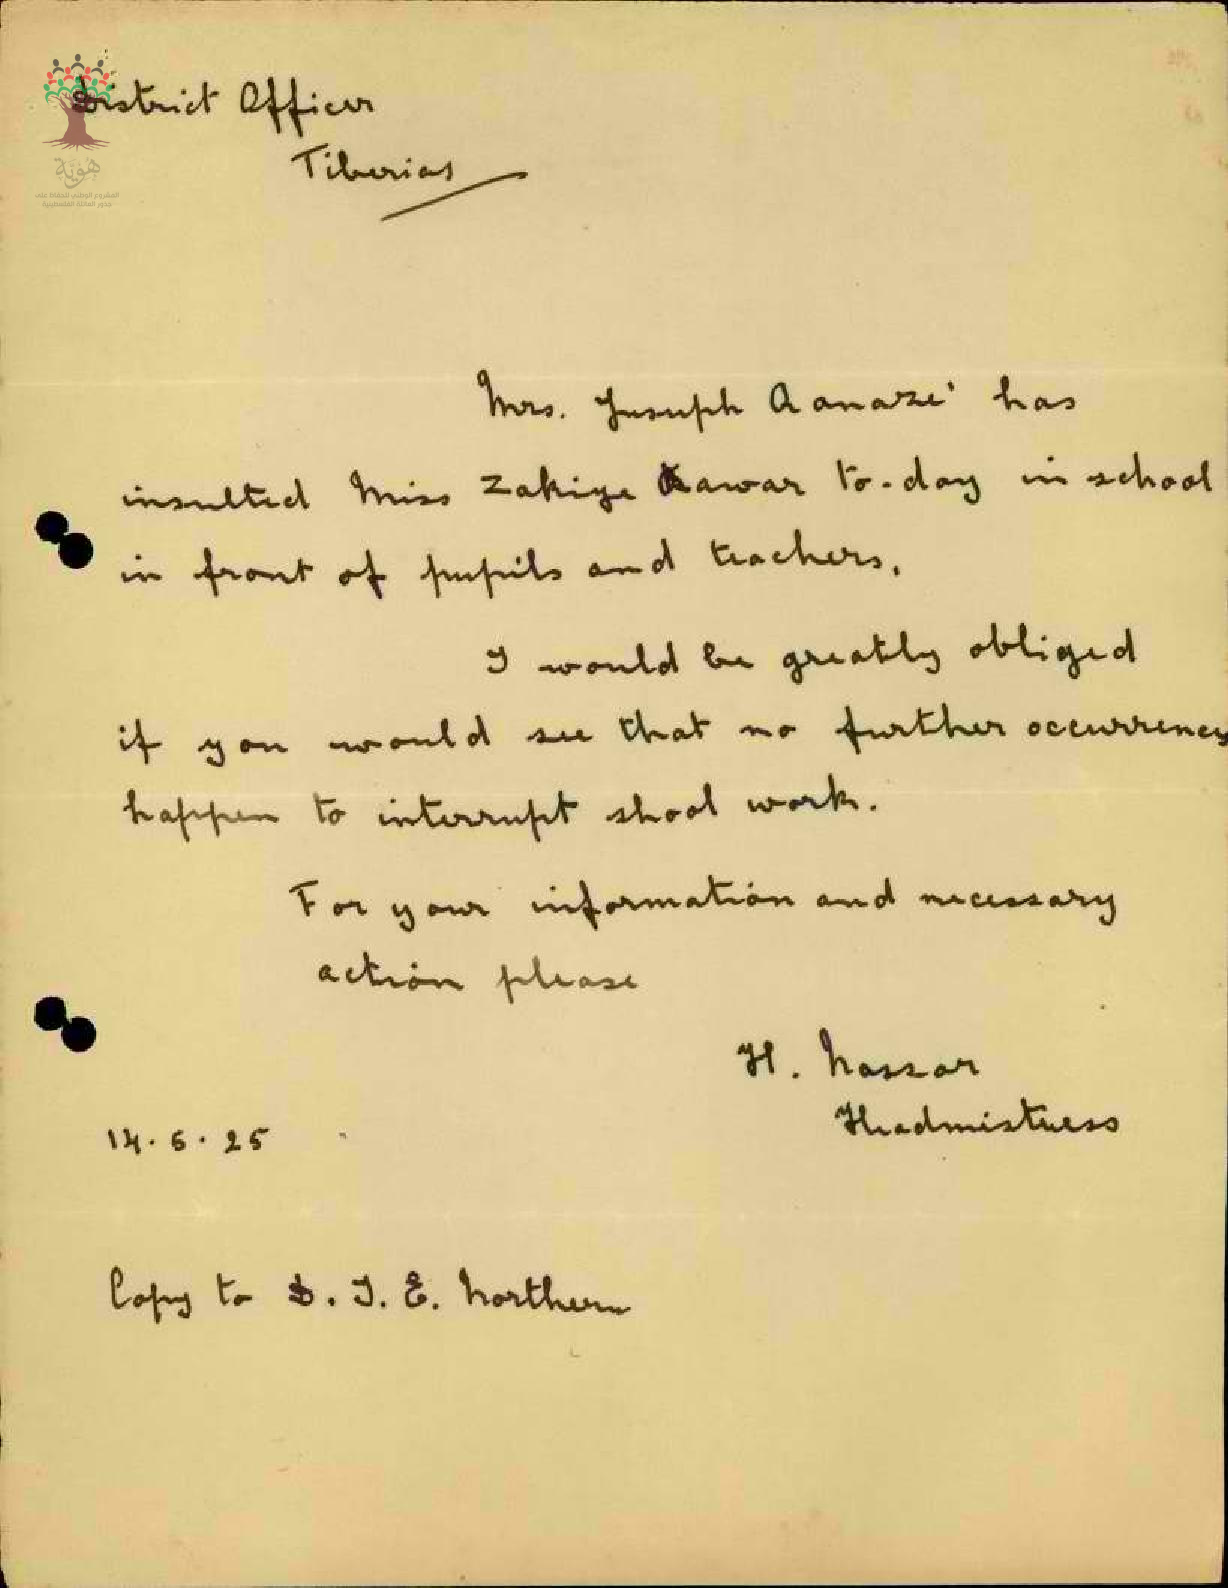 District Officer
Tiberias
هوية
المشروع الوطني للحفاظ على
جذور العائلة الفلسطينية
Mrs. Yusuph Aanazé has
insulted Miss Zakiye Kawar to-day in school
in front of pupils and teachers.
I would be greatly obliged
if you would see that no further occurrences
happen to interrupt shool work.
For your information and necessary
action please
H. Nassar
Headmistress
14. 5. 25
Copy to D. I. E. Northern